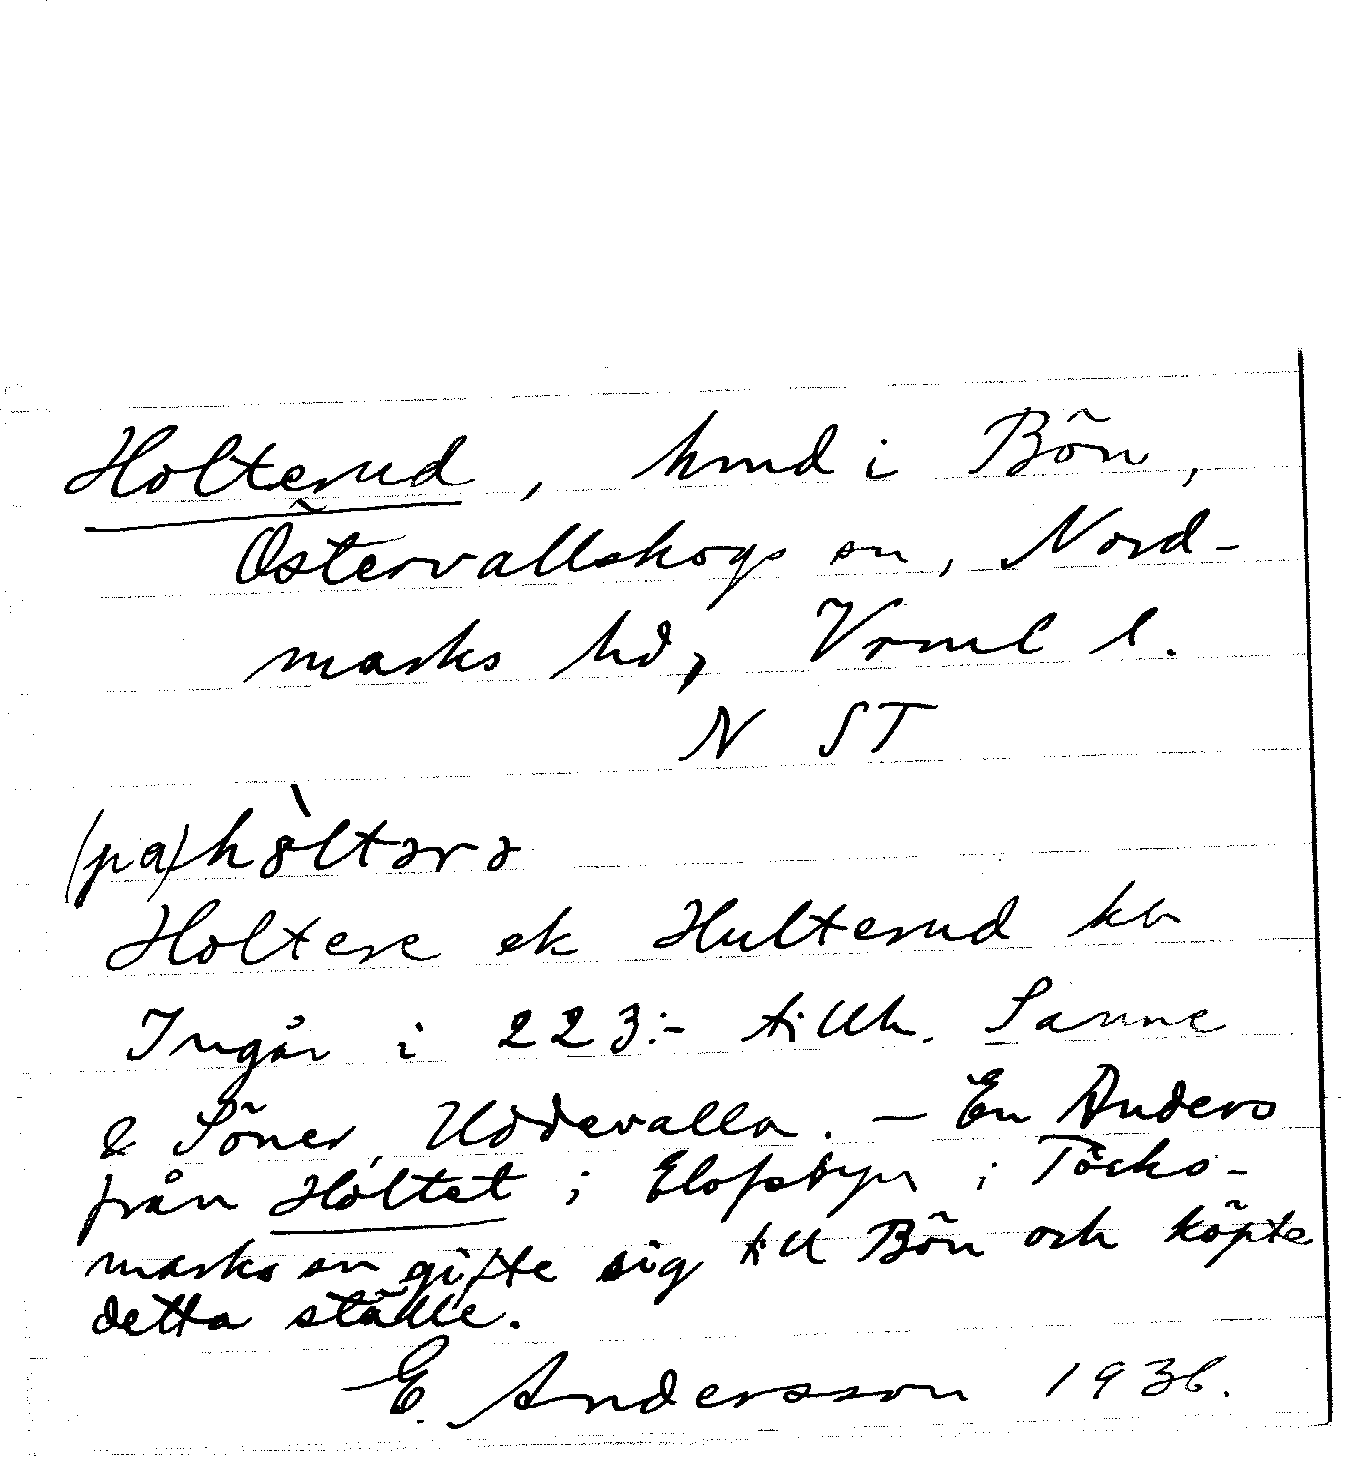 Holterud, hmd i Bön,
Östervallskogs sn, Nord-
marks hd, Vrml l.
N ST
(pa) hòltərə
Holtere ek Hulterud kb
Ingår i 223:- tillh. Sanne
& Söner, Uddevalla. – En Anders
från Holtet i Elofsbyn i Töcks-
marks sn gifte sig till Bön och köpte
detta ställe.
E. Andersson 1936.